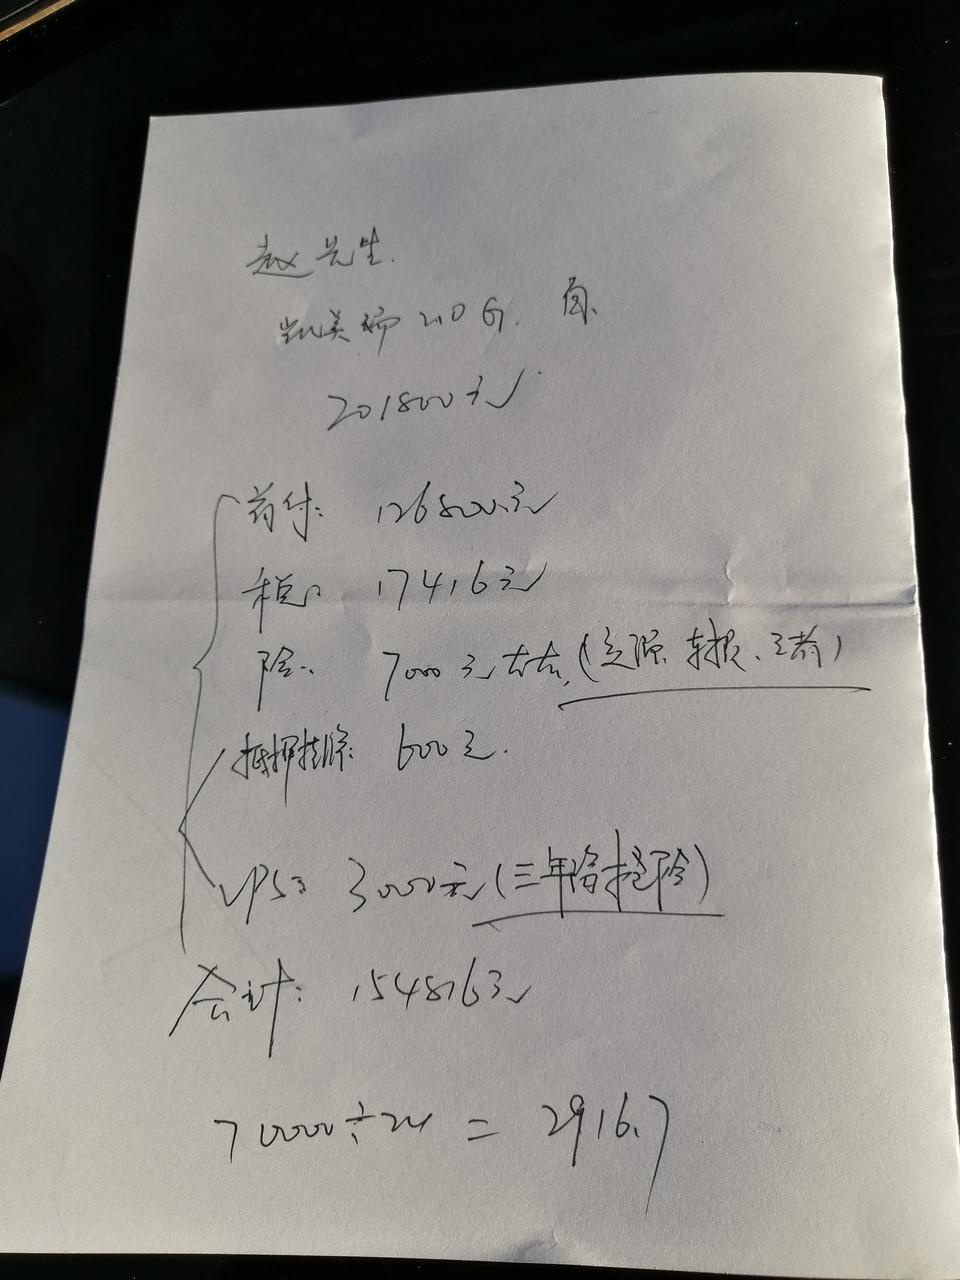 赵先生.
凯美瑞 2.0G.
201800元
首付: 126800元
税: 17416元
险: 7000元左右,(交强 车损、三者)
抵押挂牌: 600元.
GPS: 3000元(三年 险)
合计: 154816元
70000÷24 = 2916.7